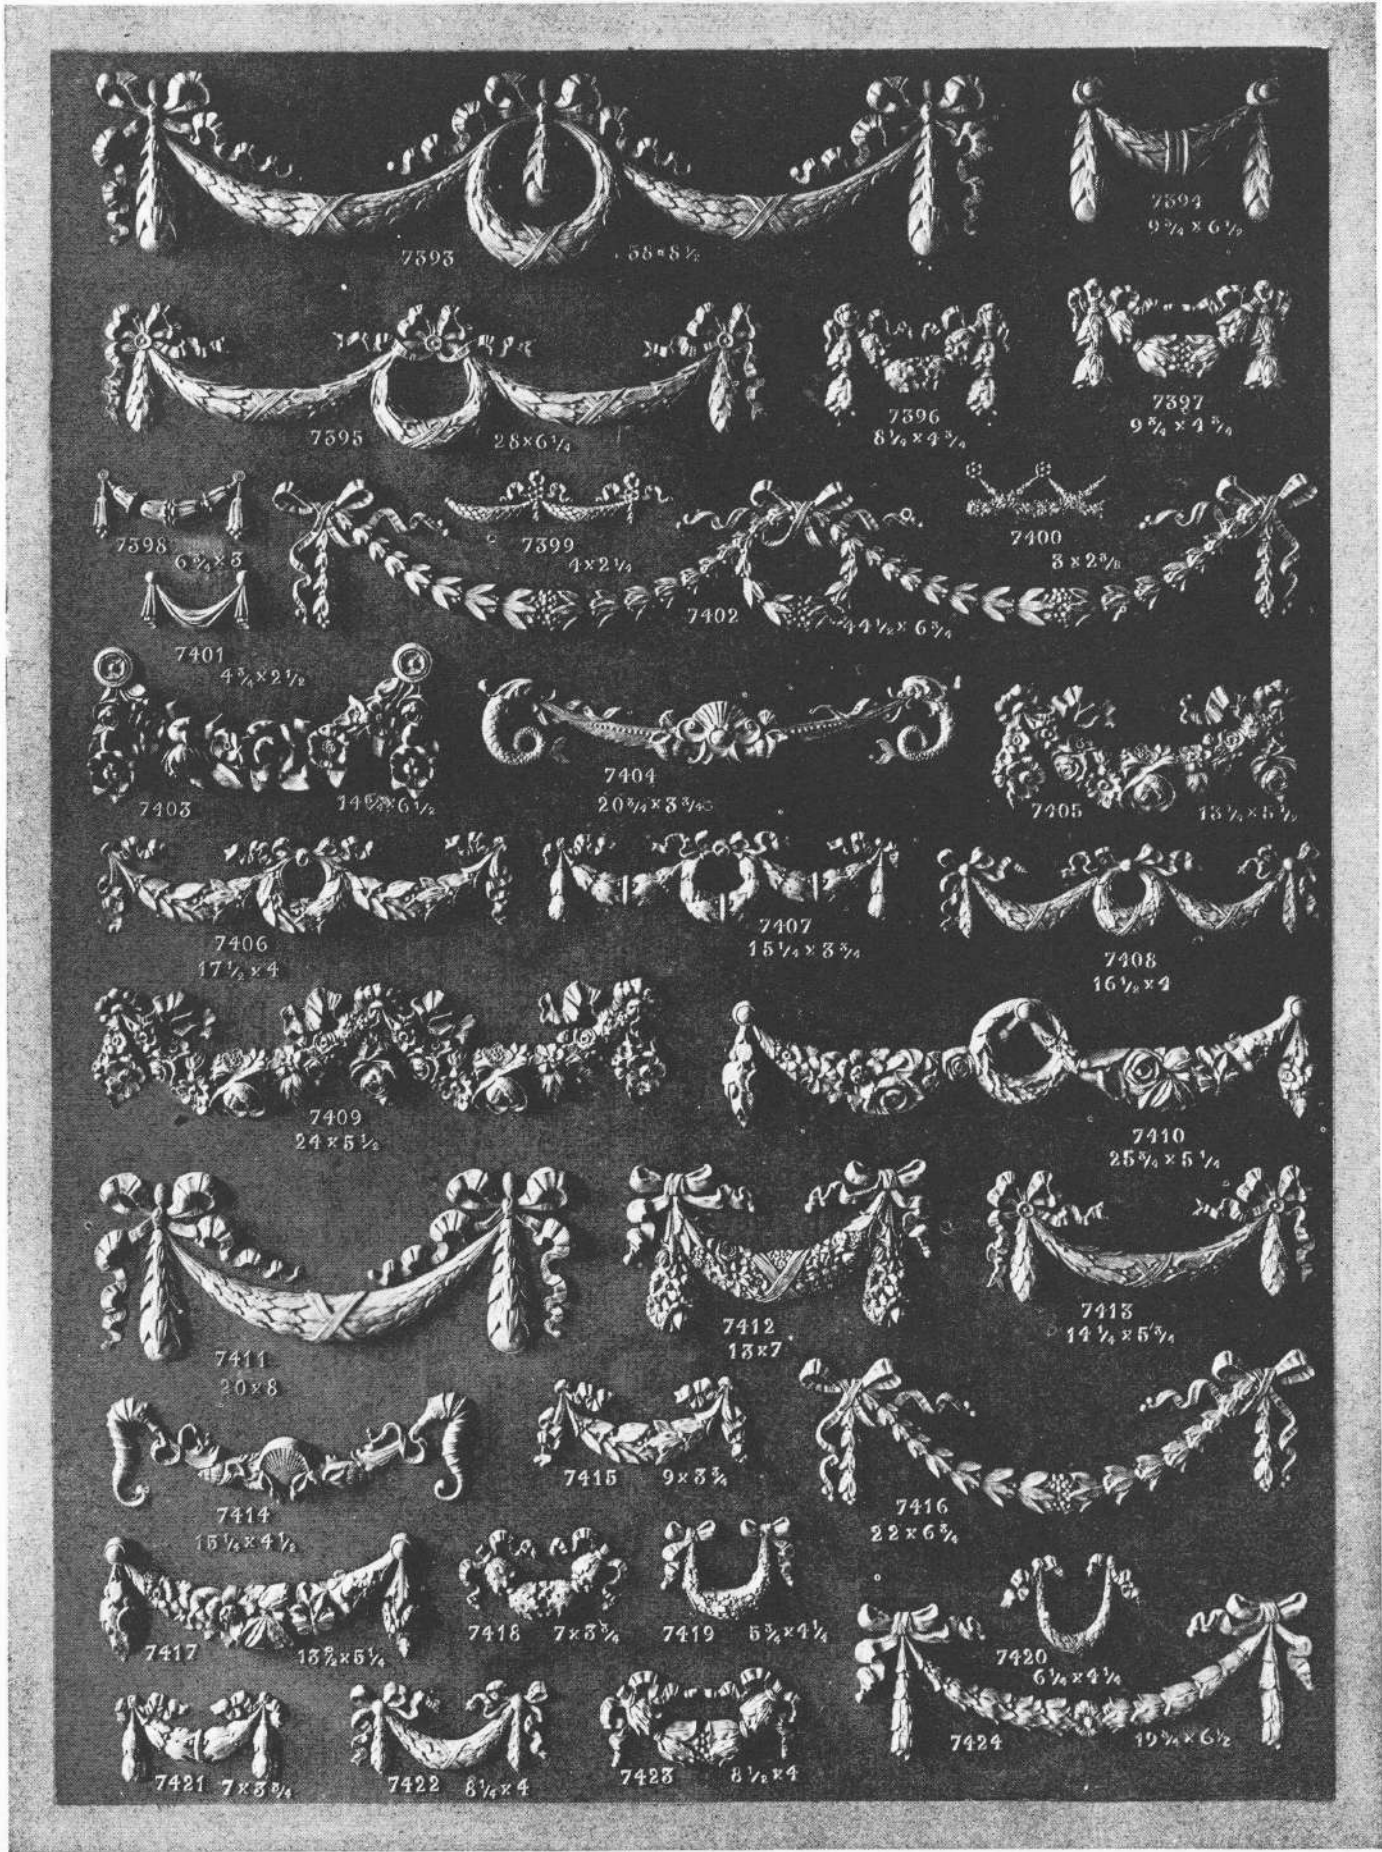 7393
38×8½
7394
9¾×6½
7395
28×6¼
7396
8¼×4¾
7397
9¾×4¾
7398
6¾×3
7399
4×2¼
7400
3×2⅜
7401
4¾×2½
7402
44½×6¾
7403
×6½
7404
20¾×3¾
7405
13¼×5½
7406
17½×4
7407
15¼×3¾
7408
16½×4
7409
24×5½
7410
25¾×5¼
7411
20×8
7412
13×7
7413
14¼×5¾
7414
15¼×4½
7415
9×3¾
7416
22×6¾
7417
×5¼
7418
7×3¾
7419
5¾×4¼
7420
6¼×4¼
7421
7×3¾
7422
8¼×4
7423
8½×4
7424
19¾×6½